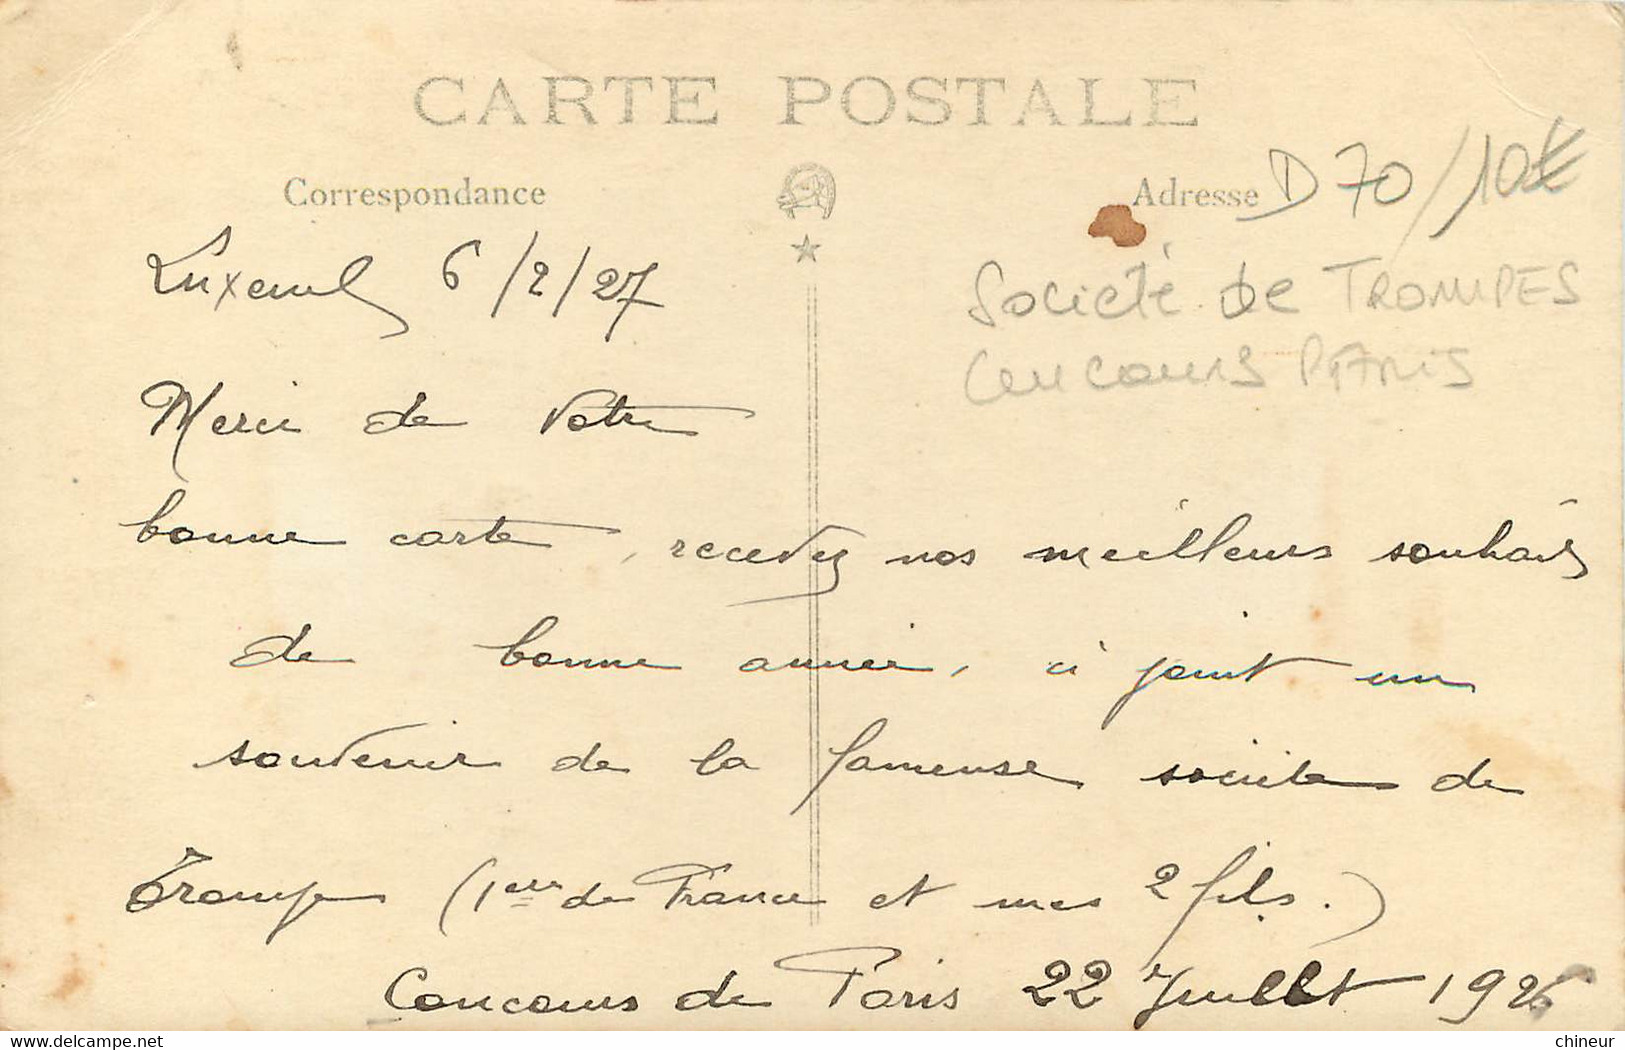 CARTE POSTALE
Correspondance
Adresse D70/10€
Société de TROMPES
Concours PARIS
Luxeuil 6/2/27
Merci de votre
bonne carte, recevez nos meilleurs souhaits
de bonne année, ci joint un
souvenir de la fameuse société de
Trompe (1ere de France et mes 2 fils.)
Concours de Paris 22 Juillet 1926
chineur